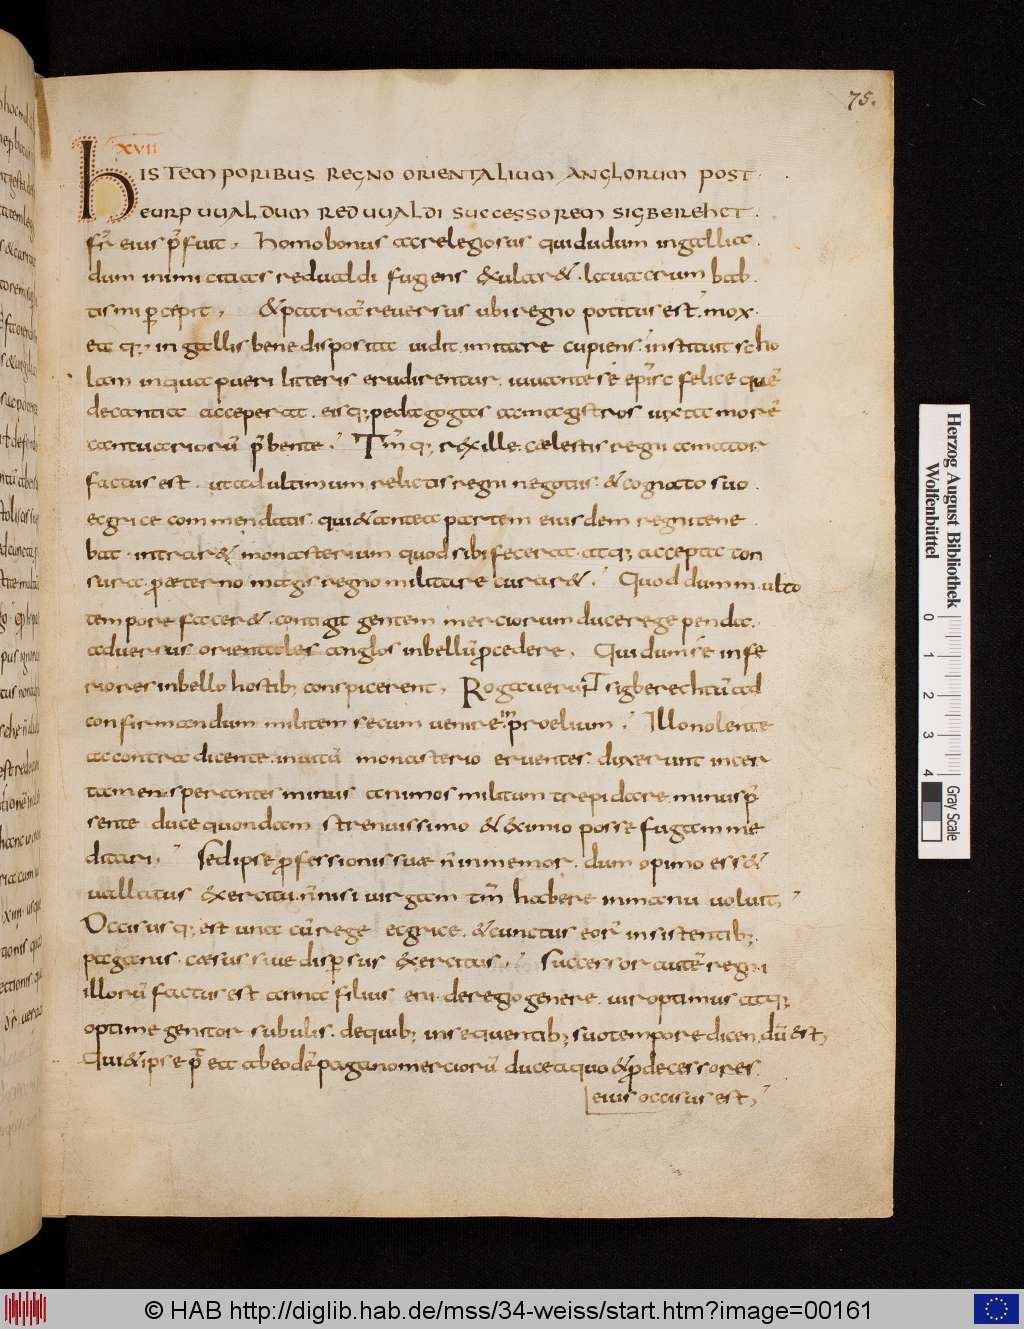 75.
xvii
hIS TEMPORIBUS REGNO ORIENTALIUM ANGLORUM POST
EURPUUALDUM REDUUALDI SUCCESSOREM SIGBEREHCT.
fr̄ eius p̄fuit, homo bonus ac relegiosus qui dudum in gallia
dum inimicitias redualdi fugiens exularet. lauacrum bab
tismi percepit, & patriā reuersus ubi regno potitus est, mox
ea q; in gallis bene disposita uidit imitare cupiens. instituit scho
lam in qua pueri litteris erudirentur. iuuante se ep̄isc felice quē
de cantia acceperat. eisq; pedagogas ac magistros iuxta morē
cantuariorū p̄bente, Tm̄ q; rex ille. cælestis regni amator
factus est. ut ad ultimum relictis regni negotiis. & cognato suo.
ecgrice commendatis. qui & antea partem eiusdem regni tene
bat. intraret monasterium quod sibi fecerat. atq; accepta ton
sura. p̄ æterno magis regno militare curaret. Quod dum multo
tempore faceret. contigit gentem merciorum duce rege penda.
aduersus orientales anglos in bellū procedere, Qui dum se infe
riores in bello hostib; conspicerent, Rogauerunt sigberechtū ad
confirmandum militem secum uenire in p̄roelium. Illo nolente
ac contra dicente. inuitū monasterio eruentes. duxerunt incer
tamen. sperantes minus animos militum trepidare. minus p̄
sente duce quondam strenuissimo & eximio posse fugam me
ditari, Sed ipse professionis suæ n̄ inmemor. dum opimo esset
uallatus exercitu. n̄ nisi uirgam tm̄ habere in manu uoluit,
Occisusq; est una cū rege ecgrice. & cunctus eor̄ insistentib;
paganis. cæsus siue dispersus exercitus, Successor autē regni
illorū factus est anna filius eni. de regio genere. uir optimus atq;
optime genitor subulis. de quib; insequentib; suo tempore dicendū est,
Qui & ipse p̄ ea ab eodē pagano merciorū duce a quo & prædecessores
eius occisus est,
Herzog August Bibliothek
Wolfenbüttel
0 1 2 3 4
Gray Scale
© HAB http://diglib.hab.de/mss/34-weiss/start.htm?image=00161